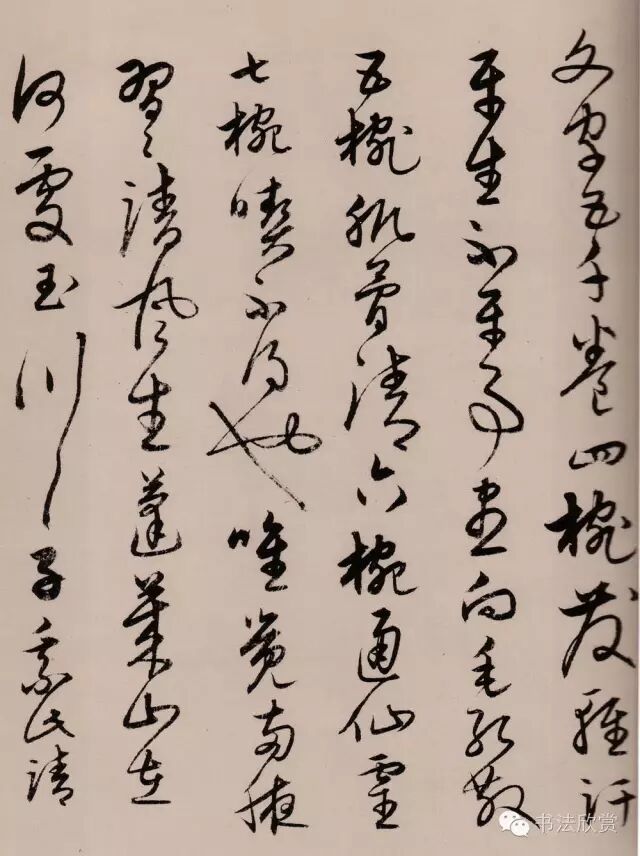 文字五千卷四椀發輕汗
平生不平事盡向毛孔散
五椀肌骨清六椀通仙靈
七椀喫不得也唯覺兩腋
習〻清風生蓬萊山在
何處玉川子乘此清
书法欣赏